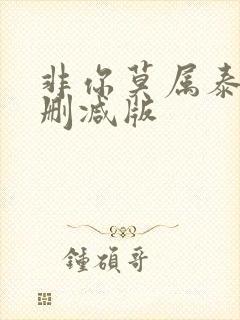 非你莫属泰
删减版
鍾碩哥